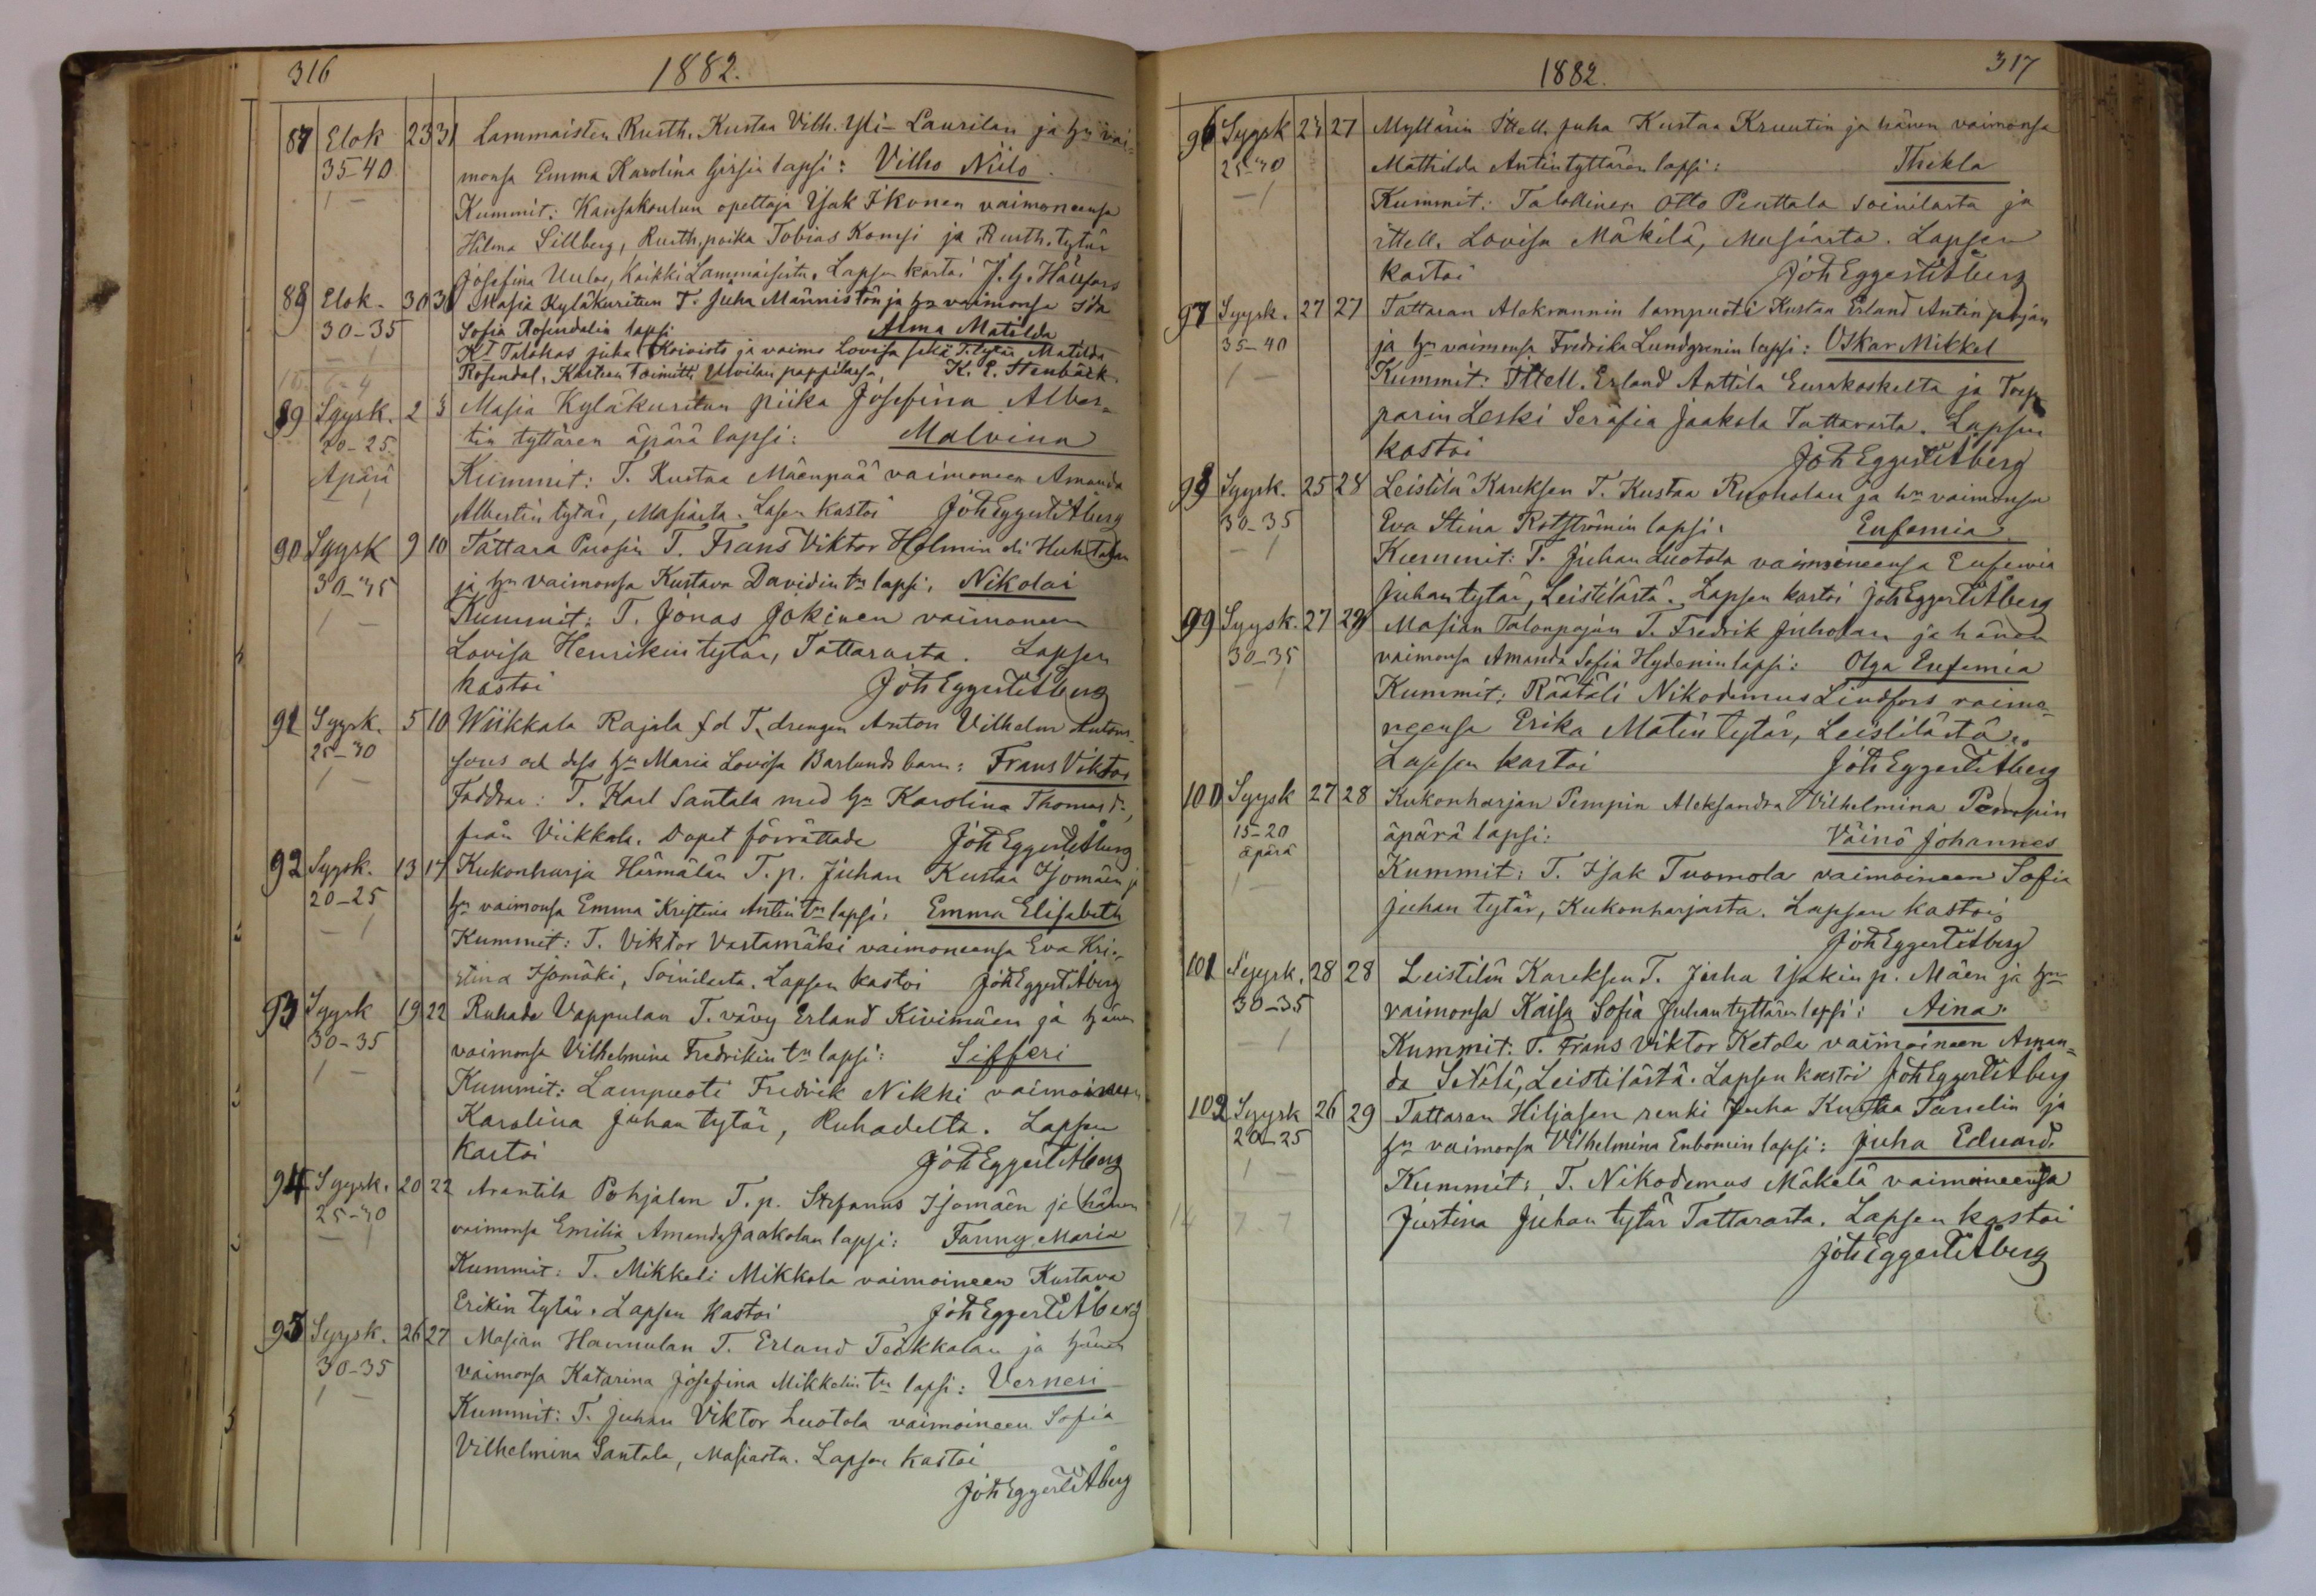 316
1882.
87 Elok 23 31 Lammaisten Rusth. Kustaa Vilh. Yli-Laurilan ja hn vai-
35-40 monsa Emma Karolina lapsi: Vilho Niilo.
1 — Kummit: Kansakoulun opettaja Isak Ikonen vaimoneensa
Hilma Sillberg, Rusth. poika Tobias Komsi ja Rusth. tytär
Josefina Uulas, Kaikki Lammaisista. Lapsen kastoi J. G. Hällfors
88 Elok. 30 31 Masia Kyläkuritun T. Juha Männistön ja hn vaimonsa Ida
30-35 Sofia Rosendalin lapsi Alma Matilda
— 1 Kt Talokas Juha Koivisto ja vaimo Lovisa sekä T. tytär Matilda
Rosendal. Kasteen toimitti Ulvilan pappilassa K. E. Stenbäck.
89 Syysk. 2 3 Masia Kyläkuritun piika Josefina Alber-
20-25 tin tyttären äpärä lapsi: Malvina
Äpärä Kummit: T. Kustaa Mäenpää vaimoneen Amanda
— 1 Albertin tytär, Masiasta. Lasen kastoi Joh Eggert Åberg
90 Syysk 9 10 Tattara Puosin T. Frans Viktor Holmin eli Huhtalan
30-35 ja hn vaimonsa Kustava Davidin tn lapsi: Nikolai
1 — Kummit: T. Jonas Jokinen vaimoneen
Lovisa Henrikin tytär, Tattarasta. Lapsen
kastoi Joh Eggert Åberg
91 Syysk. 5 10 Wiikkala Rajala f d T. drengen Anton Vilhelm Antons-
25-30 sons och dess hu Maria Lovisa Barlunds barn: Frans Viktor
1 — Faddrar: T. Karl Santala med hu Karolina Thomasdr,
från Viikkala. Dopet förrättade Joh Eggert Åberg
92 Syysk. 13 17 Kukonharja Härmälän T. p. Juhan Kustaa Isomäen ja
20-25 hn vaimonsa Emma Kristina Antin tn lapsi: Emma Elisabeth
— 1 Kummit: T. Viktor Vastamäki vaimoneensa Eva Kri-
stina Isomäki, Soinilasta. Lapsen kastoi Joh Eggert Åberg
93 Syysk 19 22 Ruhade Vappulan T. vävy Erland Kivimäen ja hänen
30-35 vaimonsa Vilhelmina Fredrikin tn lapsi: Sifferi
1 — Kummit: Lampuoti Fredrik Nikki vaimoineen
Karolina Juhan tytär, Ruhadelta. Lapsen
kastoi Joh Eggert Åberg
94 Syysk. 20 22 Arantila Pohjalan T. p. Stefanus Isomäen ja hänen
25-30 vaimonsa Emilia Amanda Jaakolan lapsi: Fanny Maria
— 1 Kummit: T. Mikkeli Mikkola vaimoineen Kustava
Erikin tytär. Lapsen kastoi Joh Eggert Åberg
95 Syysk. 26 27 Masian Hannulan T. Erland Teikkalan ja hänen
30-35 vaimonsa Katarina Josefina Mikkelin tn lapsi: Verneri
1 — Kummit: T. Juhan Viktor Luotola vaimoineen Sofia
Vilhelmina Santala, Masiasta. Lapsen kastoi
Joh Eggert Åberg
1882.
317
96 Syysk 23 27 Myllärin Ittell. Juha Kustaa Kruutin ja hänen vaimonsa
25-30 Mathilda Antintyttären lapsi: Thekla
— 1 Kummit: Talollinen Otto Penttala Soinilasta ja
ittell. Lovisa Mäkilä, Masiasta. Lapsen
kastoi Joh Eggert Åberg
97 Syysk. 27 27 Tattaran Alakrannin lampuoti Kustaa Erland Antin pojan
35-40 ja hn vaimonsa Fredrika Lundgrenin lapsi: Oskar Mikkel
1 — Kummit: Ittell. Erland Anttila Eurakoskelta ja Torp-
parin Leski Serafia Jaakola Tattarasta. Lapsen
kastoi Joh Eggert Åberg
98 Syysk. 25 28 Leistilä Kareksen T. Kustaa Ruoholan ja hn vaimonsa
30-35 Eva Stina Rotströmin lapsi: Eufemia
— 1 Kummit: T. Juhan Luotola vaimoineensa Eufemia
Juhan tytär, Leistilästä. Lapsen kastoi Joh Eggert Åberg
99 Syysk. 27 28 Masian Talonpojan T. Fredrik Juholan ja hänen
30-35 vaimonsa Amanda Sofia Hydenin lapsi: Olga Eufemia
— 1 Kummit: Räätäli Nikodemus Lindfors vaimo-
neensa Erika Matin tytär, Leistilästä.
Lapsen kastoi Joh Eggert Åberg
100 Syysk 27 28 Kukonharjan Pempin Aleksandra Vilhelmina Pempin
15-20 äpärä lapsi: Väinö Johannes
äpärä
1 — Kummit: T. Isak Tuomola vaimoineen Sofia
Juhan tytär, Kukonharjasta. Lapsen kastoi
Joh Eggert Åberg
101 Syysk. 28 28 Leistilän Kareksen T. Juha Isakin p. Mäen ja hn
30-35 vaimonsa Kaisa Sofia Juhan tyttären lapsi: Aina.
— 1 Kummit: T. Frans Viktor Ketola vaimoineen Aman-
da Setälä, Leistilästä. Lapsen kastoi Joh Eggert Åberg
102 Syysk 26 29 Tattaran Hiljasen renki Juha Kustaa Tanelin ja
20-25 hn vaimonsa Vilhelmina Enbomin lapsi: Juha Eduard.
1 — Kummit: T. Nikodemus Mäkelä vaimoineensa
14 7. 7 Justina Juhan tytär Tattarasta. Lapsen kastoi
Joh Eggert Åberg